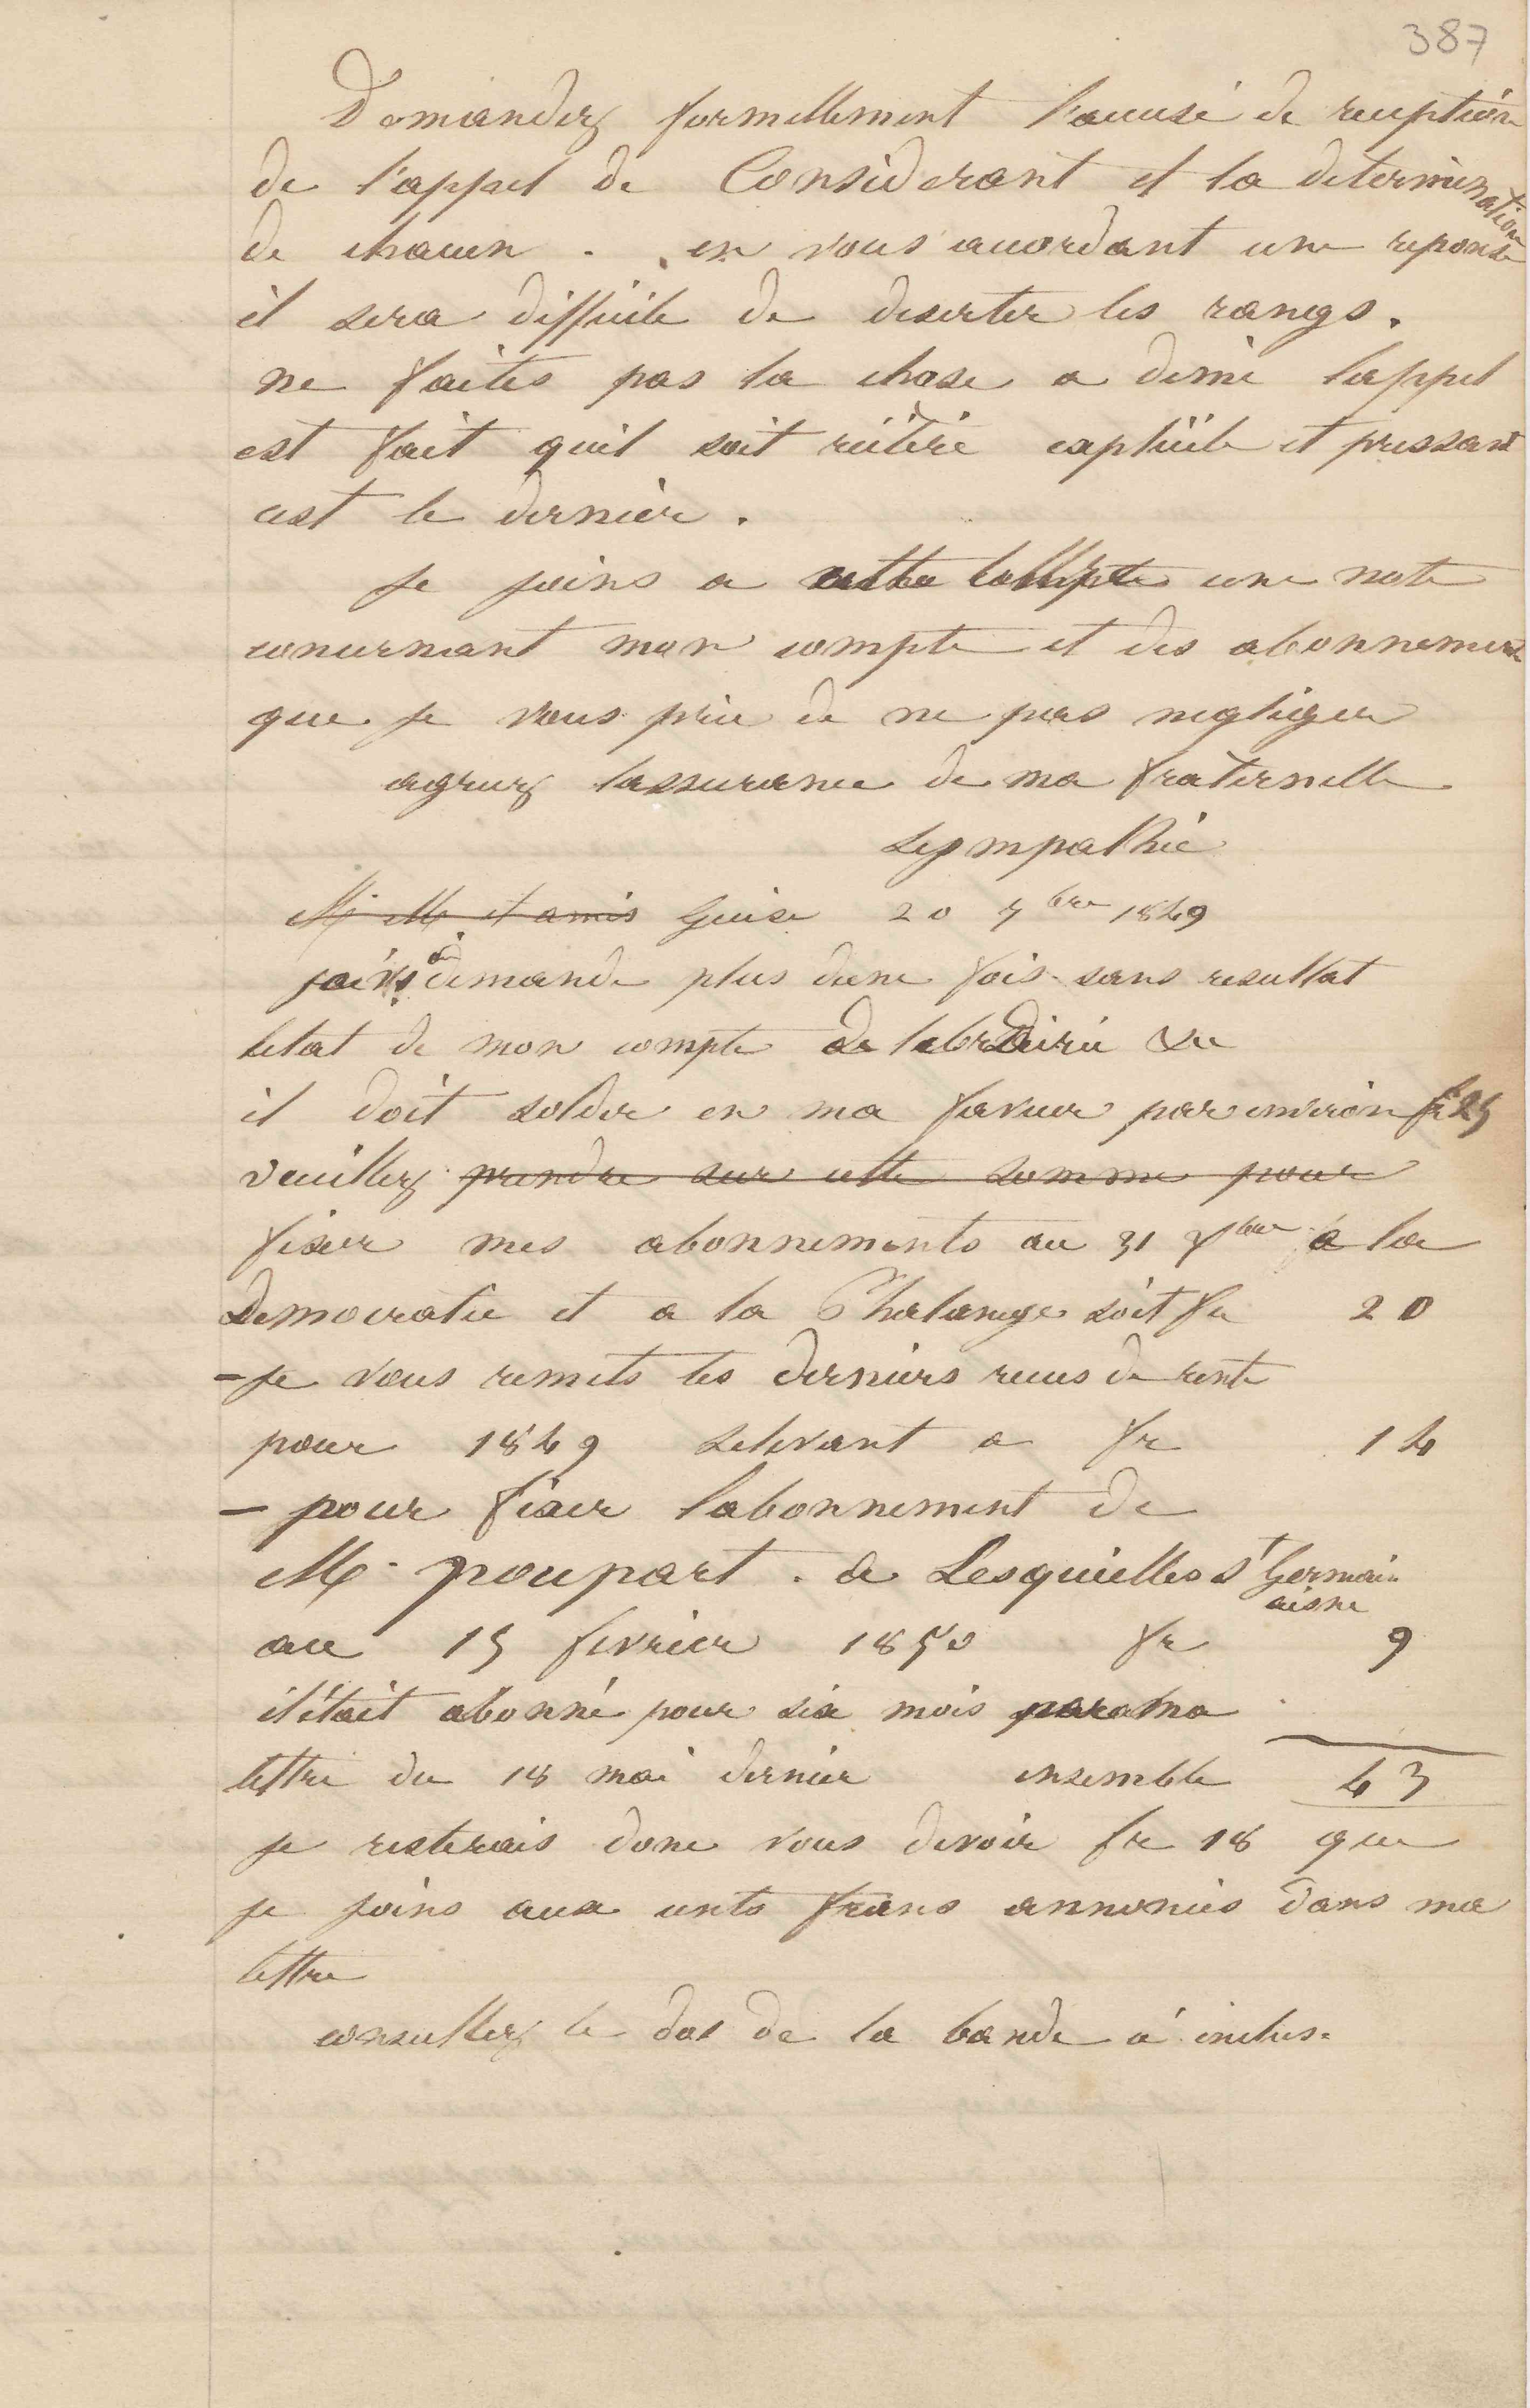 387
Demandez formellement l'accusé de reception
de l'appel de Considerant et la determination
de chacun . en vous accordant une reponse
il sera difficile de deserter les rangs.
ne faites pas la chose a demi lappel
est fait quil soit réitéré explicite et pressant
cest le dernier.
je joins a cette une note
concernant mon compte et des abonnements
que je vous prie de ne pas negliger
agreez lassurance de ma fraternelle
sympathie
M. M. et amis Guise 20 7bre 1849
jai demande plus dune fois sans resultat
letat de mon compte de librairie &c
il doit solder en ma faveur par environ fr 25
veuillez prendre sur cette somme pour
fixer mes abonnements au 31 Xbre a la
Democratie et a la Phalange soit fr 20
- je vous remets les derniers recus de rente
pour 1849 selevant a fr 14
- pour fixer labonnement de
M. poupart . a Lesquielles St Germain
aisne
au 15 fevrier 1850 fr 9
il était abonné pour six mois par ma
lettre du 18 mai dernier ensemble 43
je resterais donc vous devoir fr 18 que
je joins aux cents francs annoncés dans ma
lettre
consultez le dos de la bande ci inclus.